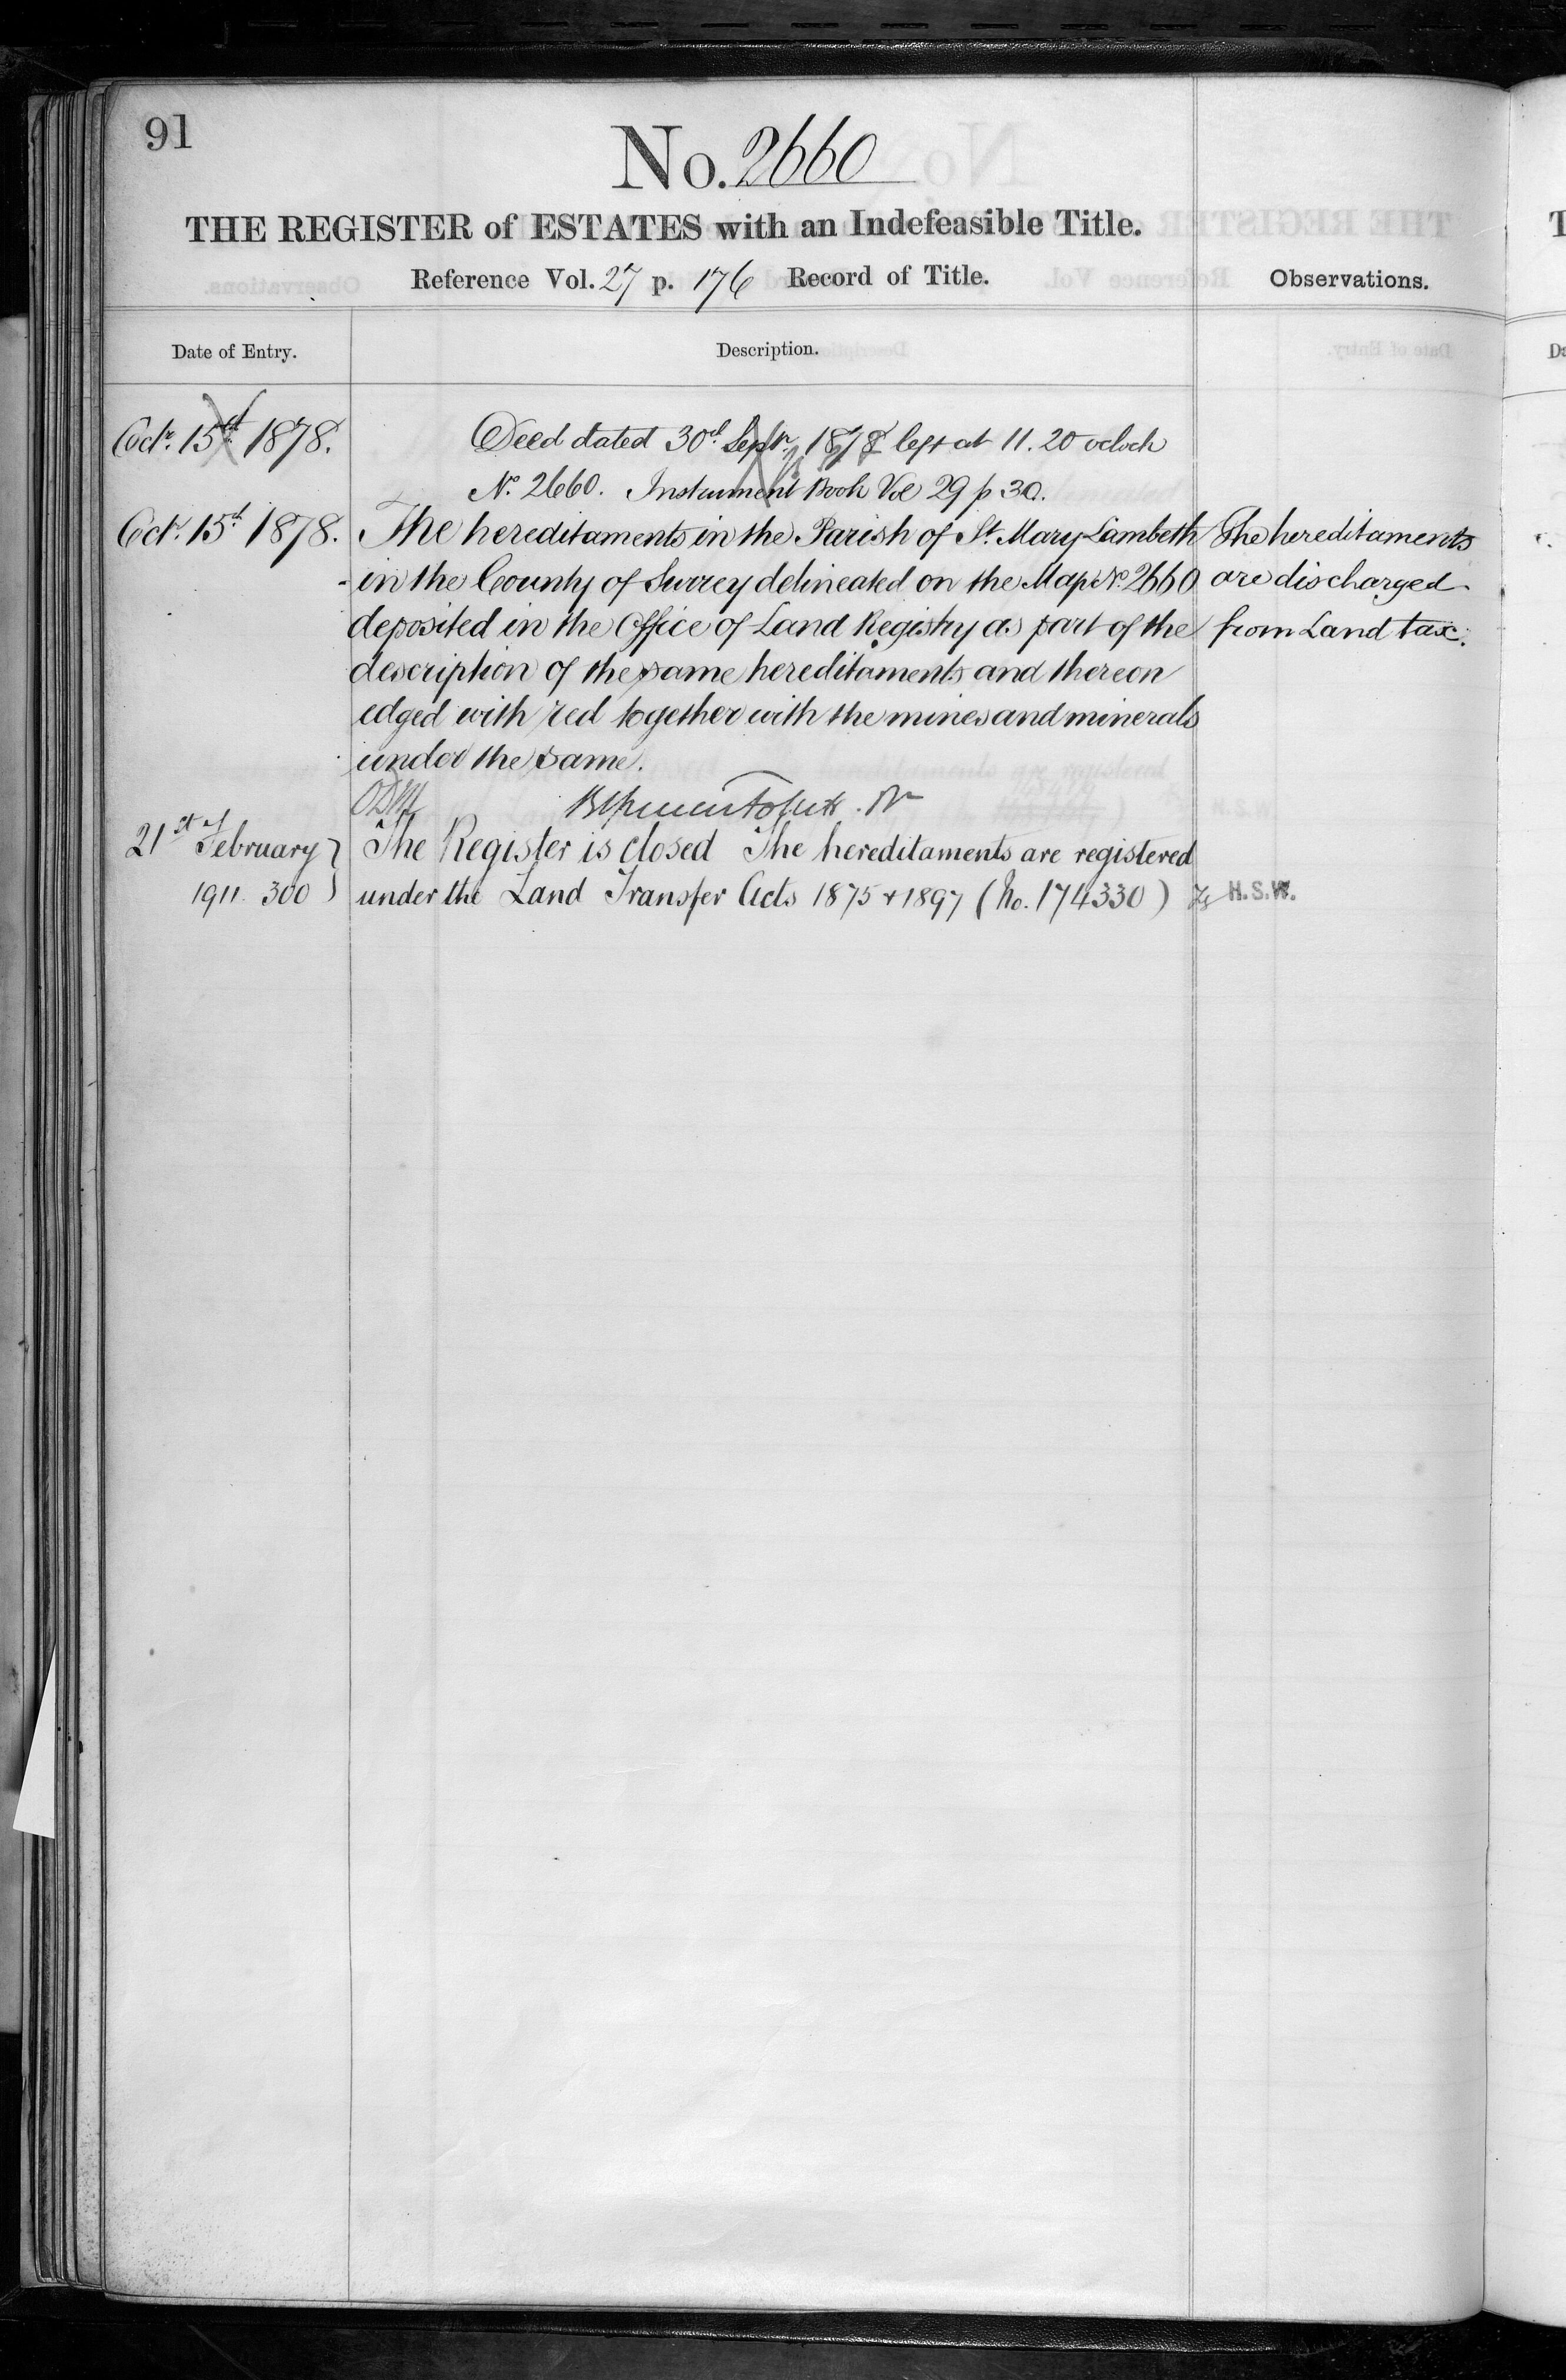 91
No. 2660
THE REGISTER of ESTATES with an Indefeasible Title.
Reference Vol. 27 p. 176 Record of Title.
Observations.
Date of Entry.
Description.
Octr. 15th 1878.
Deed dated 30th Septr. 1878 left at 11.20 oclock
No. 2660. Instrument Book Vol 29 p 30.
Octr. 15th 1878.
The hereditaments in the Parish of St. Mary Lambeth
in the County of Surrey delineated on the Map No. 2660
deposited in the Office of Land Registry as part of the
description of the same hereditaments and thereon
edged with red together with the mines and minerals
under the same.
The hereditaments
are discharged
from Land tax.
21st February
1911. 300
The Register is closed The hereditaments are registered
under the Land Transfer Acts 1875 & 1897 (No. 174330)
H.S.W.